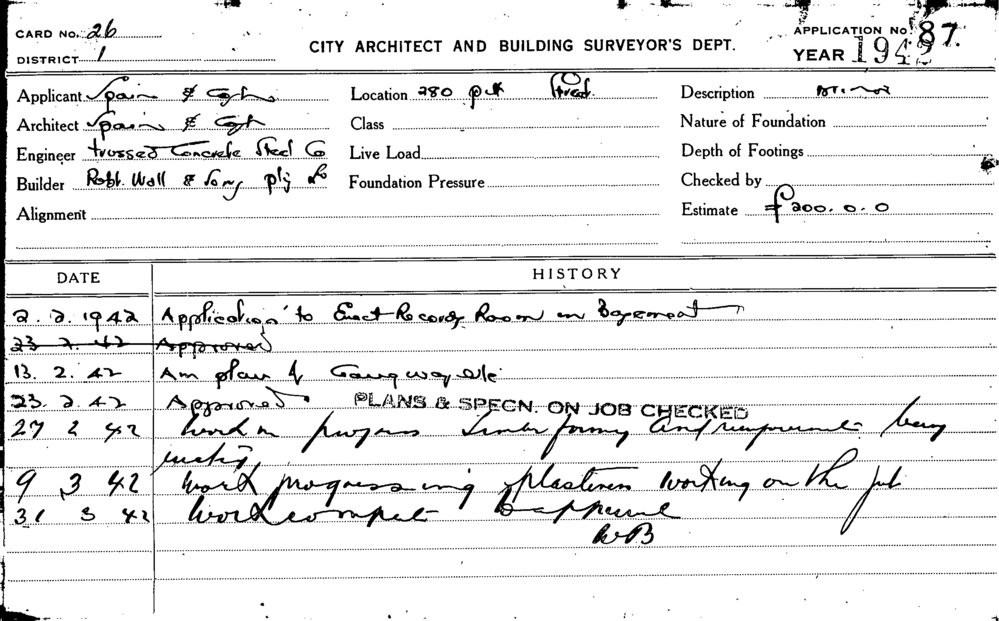 CARD No. 26
DISTRICT 1
CITY ARCHITECT AND BUILDING SURVEYOR'S DEPT.
APPLICATION No. 87.
YEAR 1942
Applicant Spain & Cosh
Location 280 Pitt Street
Description Minor
Architect Spain & Cosh
Class
Nature of Foundation
Engineer Trussed Concrete Steel Co
Live Load
Depth of Footings
Builder Robt. Wall & Sons Pty Ld
Foundation Pressure
Checked by
Alignment
Estimate £200.0.0
DATE HISTORY
2. 2. 1942 Application to Erect Records Room in Basement
23 2. 42 Approved
13. 2. 42 Am plan of Gangway etc
23. 2. 42 Approved PLANS & SPECN. ON JOB CHECKED
27 2 42 Work in progress being
9 3 42 Work progressing plasterers working on the job
31 3 42 Work complet approval
WB